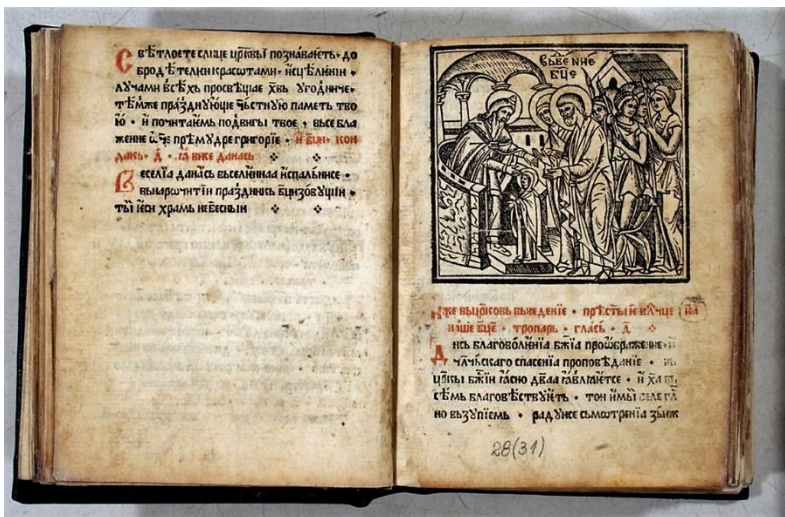 Свѣтлоѥте слнце црⷦ҇вы познаваѥтъ · до
бродѣтелни красотами · и исцѣлѥнїи ·
лꙋчами всѣхь просвѣщаѥ хвь ᲂугодниче ·
тѣмже праздноующе чьстноую паметь тво
ю · и почитаѥмь подвигы твоѥ · вьсебла
женне ѡ҃че прѣмоудре григорїе · и бцⷣн · кон
дакь · д҃ · ꙗвисе данась
Веселїа данась выселѥннаа испльнисе ·
вьнарочитїи праздникь бцизовоущїи ·
ты ѥси храмь небесныи
вьвѥнїе
бц҃е
же вьцрⷦ҇овь вьведенїе · прѣстыѥ влⷣчце
наше бц҃е · тропарь · глась · д҃
Днсь благоволѥнїа бж҃їа проѡбраженїе ·
чл҃чьскаго спасенїа проповѣданїе ·
црⷦ҇вы бж҃їи ꙗсно дв҃аа ꙗвлꙗѥтсе · и ха
сѣмь благовѣствоуѥть · тои имьї велегл҃
но вьзꙋпїемь · радоуисе сьмѡтренїа зьиж
28(31)